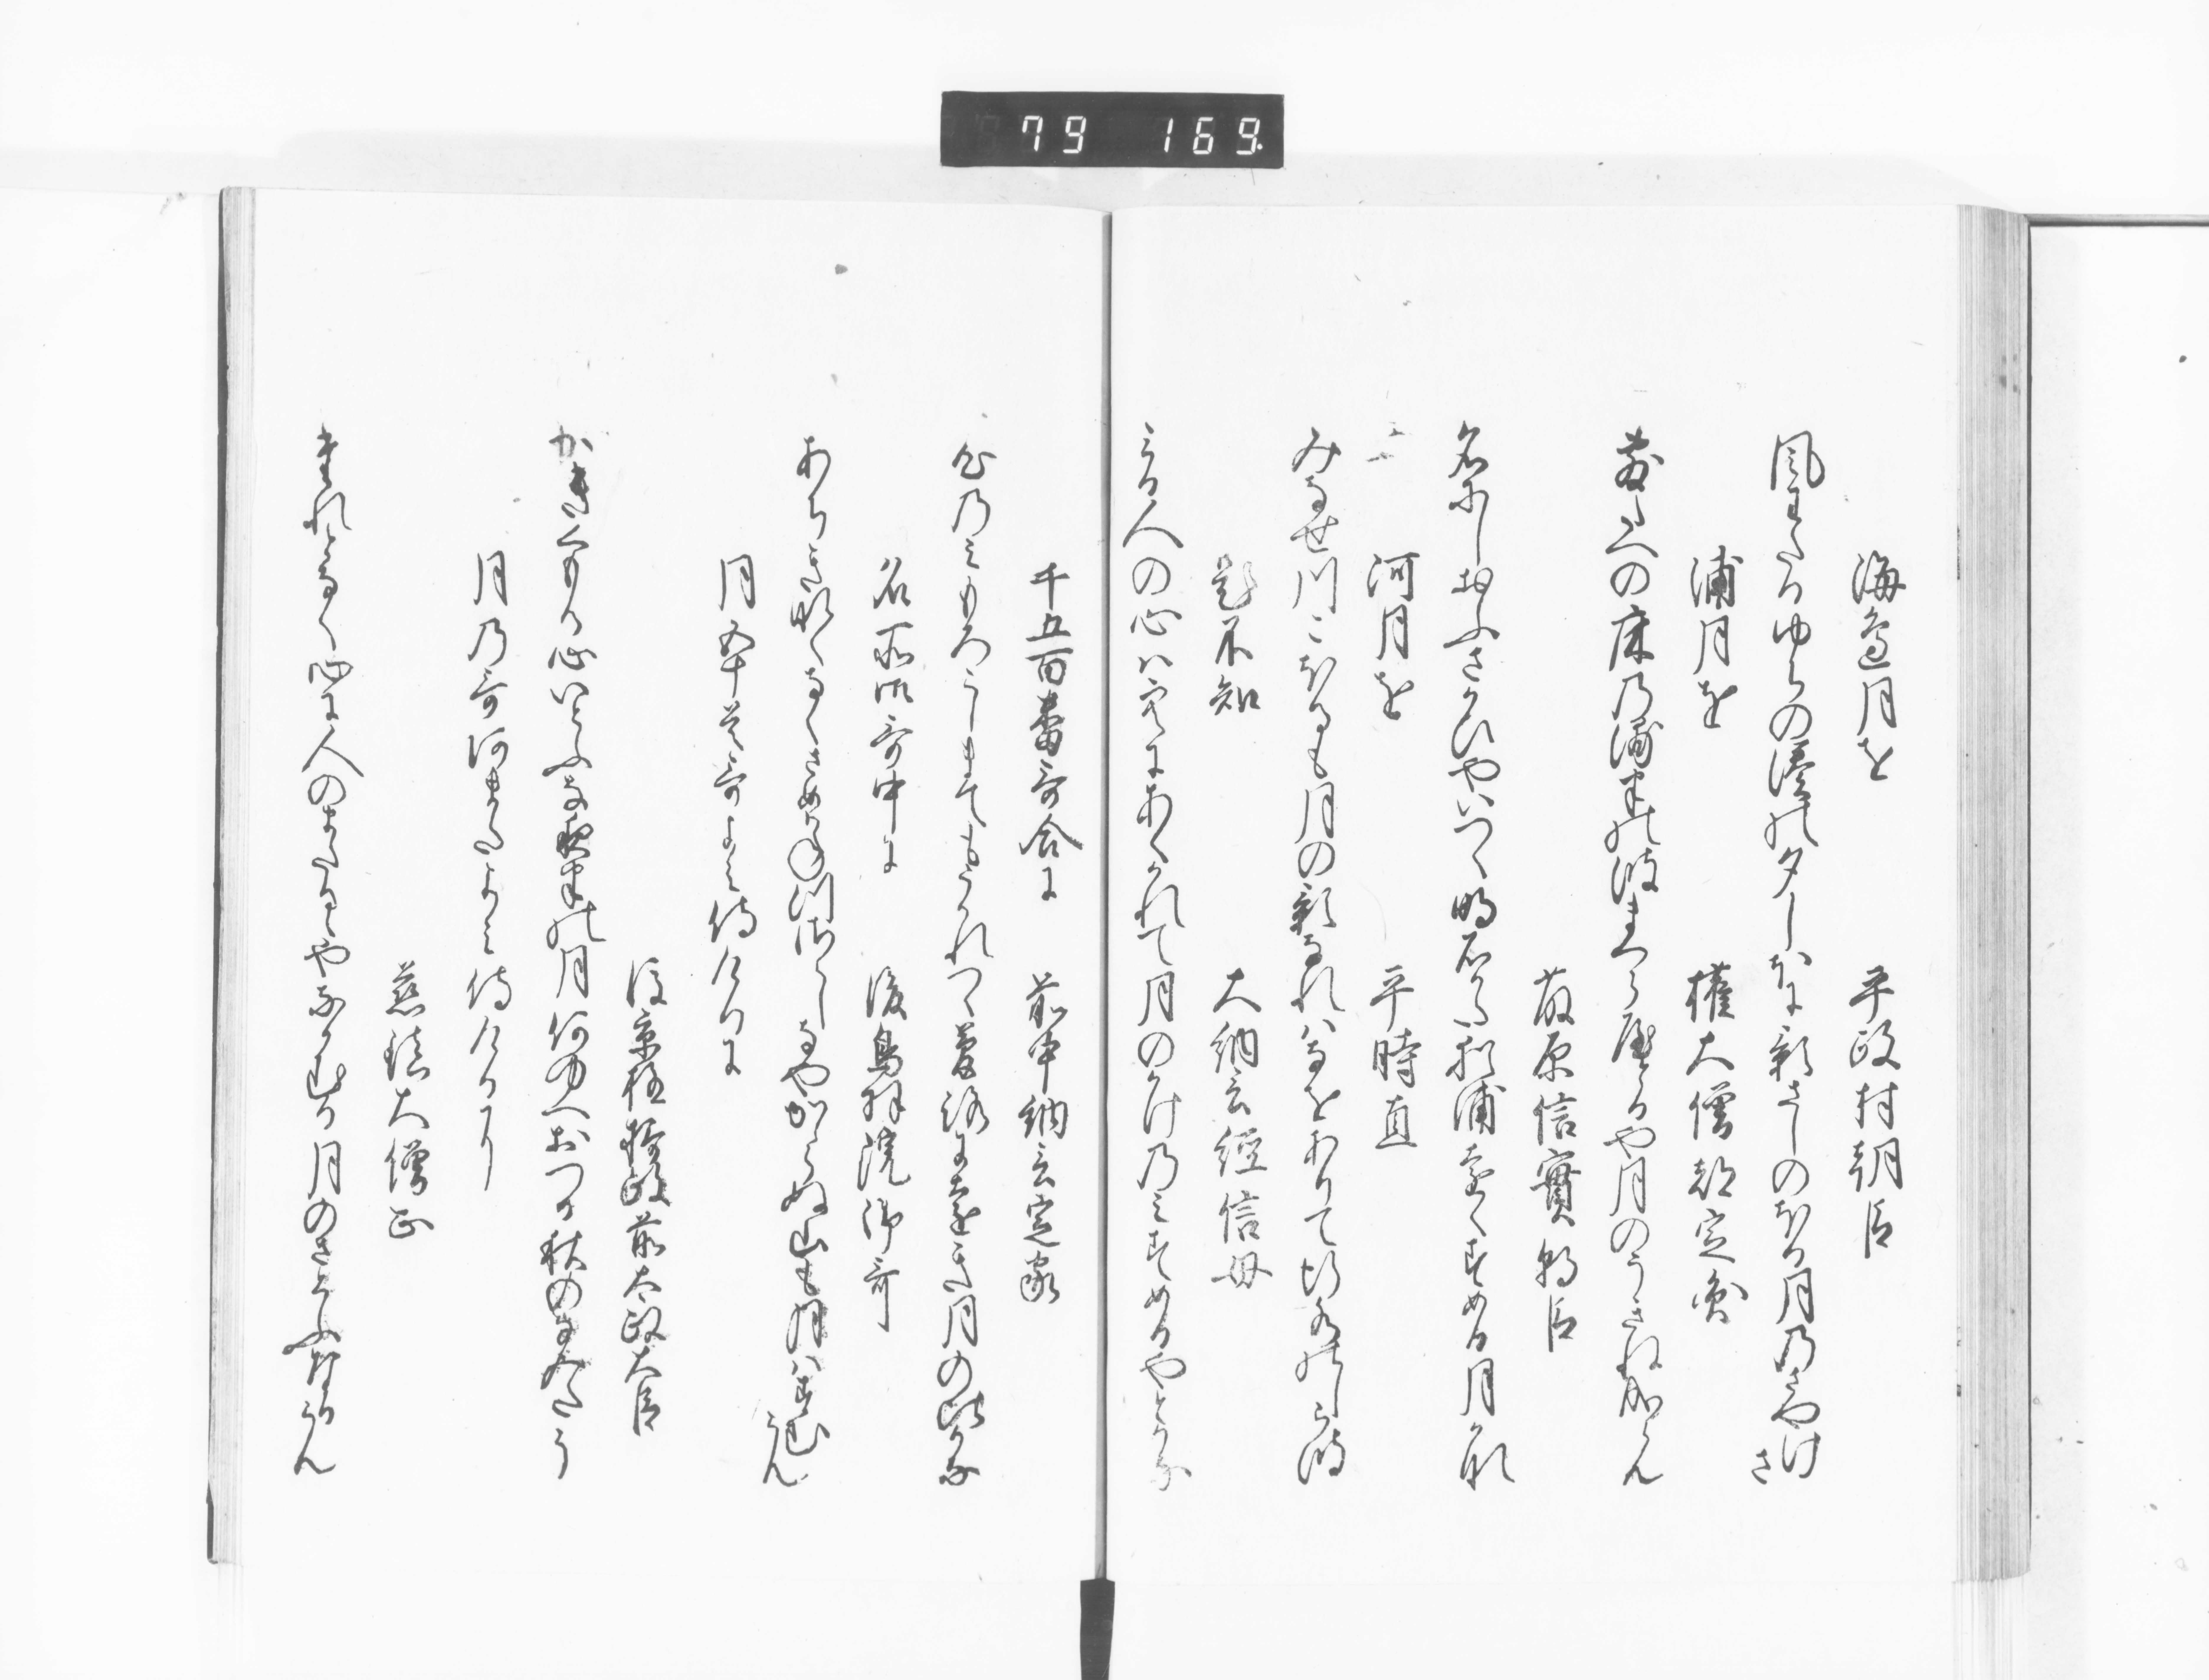 79 169.
海邊月を 平政村朝臣
風わたるゆらの湊の夕しほに影さしのほる月のさやけ
さ
浦月を 權大僧都定圓
敷たへの床の浦半の波まくら
や月のうきねなるらん
藤原信實朝臣
名にしおふさかひやいつく明石かた
浦遠くすめる月かな
河月を 平時直
みなせ川こほるも月の影なれはなをありて行水のしら波
題不知 大納言經信母
みる人の心は空にあくかれて月のかけのみすめるやとかな
千五百番哥合に 前中納言定家
心のみもろこしまてもうかれつゝ夢路に遠き月の比かな
名所御哥中に 後鳥羽院御哥
あらし
なくさめかねつ
しなやからぬ山も月はすむ
らん
月五十首哥よみ侍けるに
後京極攝政前太政大臣
かきくもる心いとふな夜半の月何ゆへおつる秋のなみたそ
月の哥あまたよみ侍けるに
慈鎮大僧正
なく心に人の
や
なかむる月のさそふなるらん